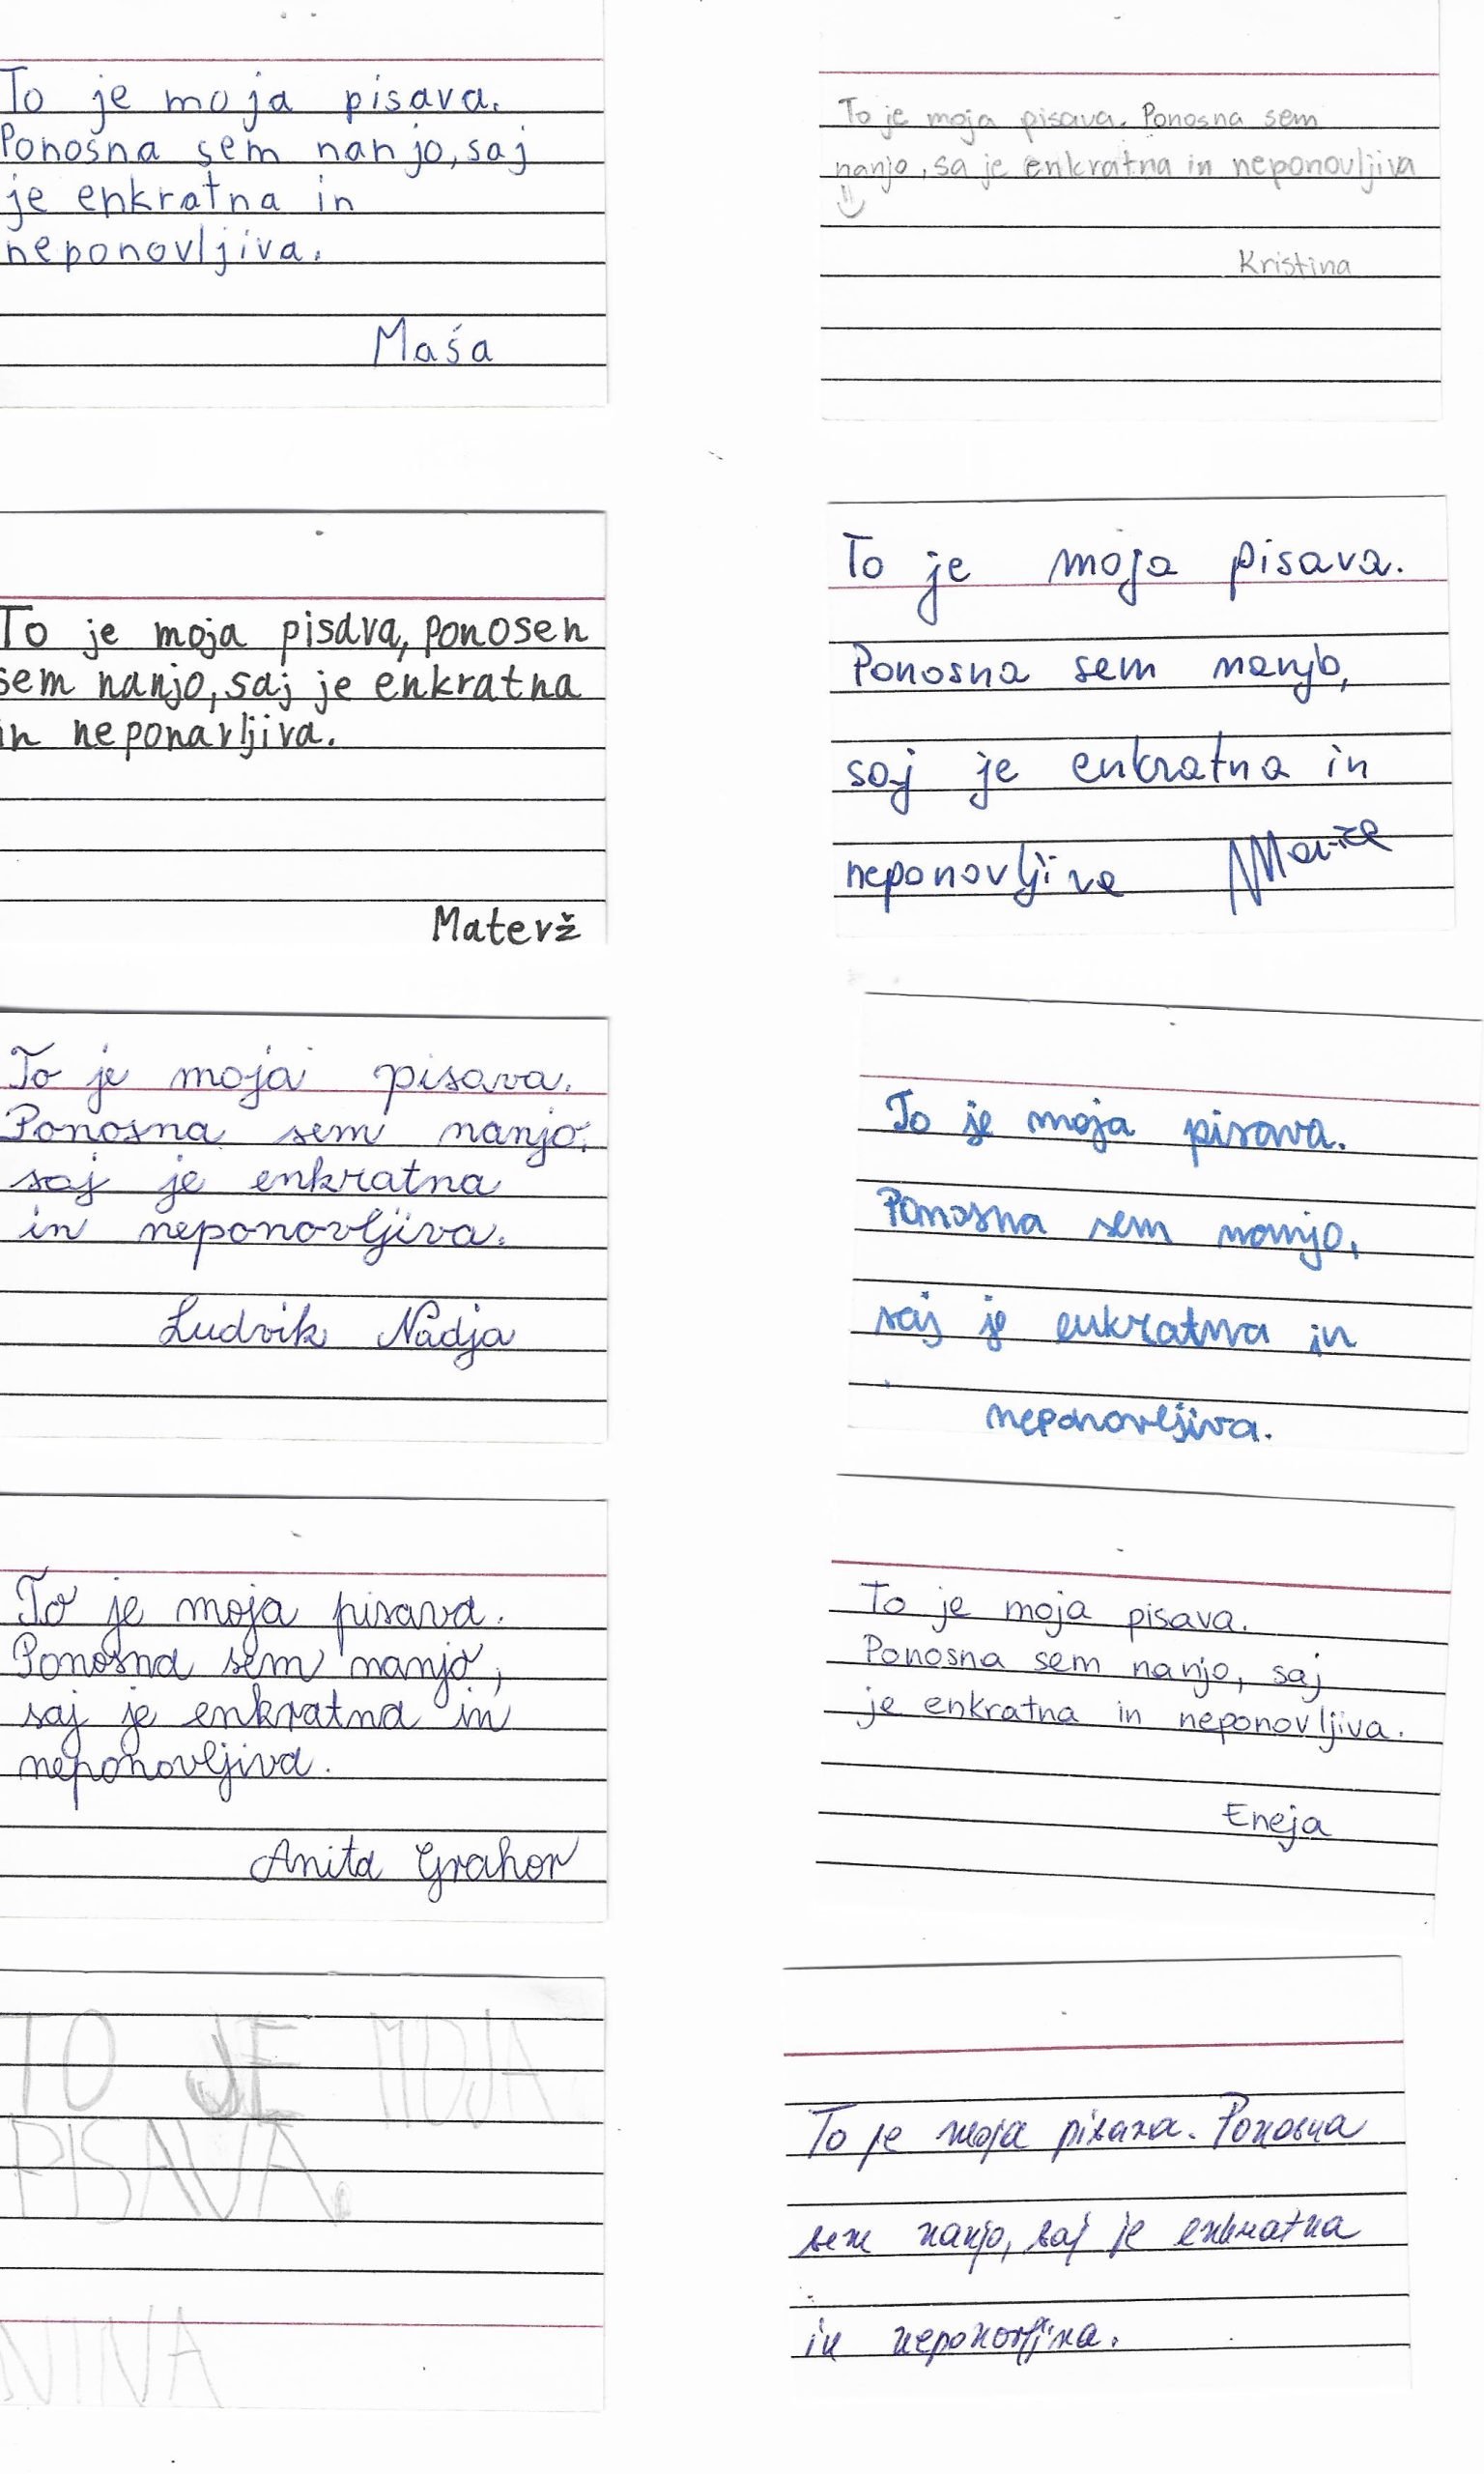 To je moja pisava.
Ponosna sem nanjo, saj
je enkratna in
neponovljiva.
Maša
To je moja pisava. Ponosna sem
nanjo, sa je enkratna in neponovljiva
Kristina
To je moja pisava, ponosen
sem nanjo, saj je enkratna
in neponavljiva.
Matevž
To je moja pisava.
Ponosna sem nanjo,
saj je enkratna in
neponovljiva
To je moja pisava.
Ponosna sem nanjo,
saj je enkratna
in neponovljiva.
Ludvik Nadja
To je moja pisava.
Ponosna sem nanjo,
saj je enkratna in
neponovljiva.
To je moja pisava.
Ponosna sem nanjo,
saj je enkratna in
neponovljiva.
Anita Grahor
To je moja pisava.
Ponosna sem nanjo, saj
je enkratna in neponovljiva.
Eneja
TO JE MOJA
PISAVA.
NINA
To je moja pisava. Ponosna
sem nanjo, saj je enkratna
in neponovljiva.